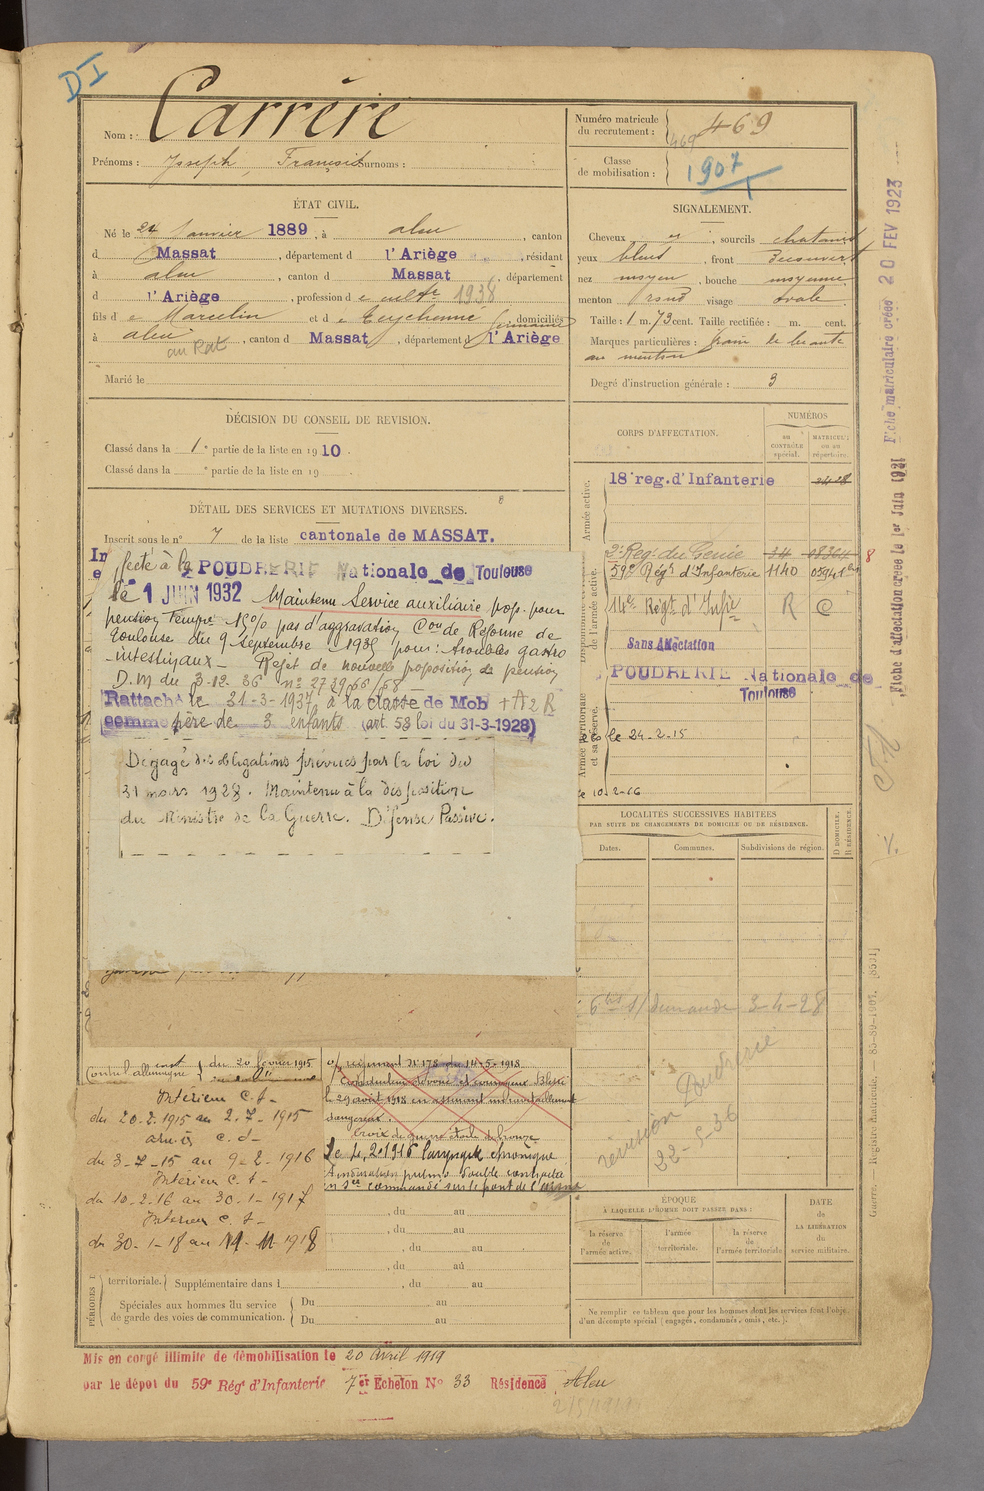 DI
Nom : Carrère
Prénoms : Joseph, François Surnoms :
Numéro matricule
du recrutement : 469
469
Classe
de mobilisation : 1907
ÉTAT CIVIL.
Né le 24 Janvier 1889, à Aleu, canton
d Massat, département d l'Ariège, résidant
à Aleu, canton d Massat, département
d l'Ariège, profession d e cultr 1938
fils d e Marcelin et d e Eychenne Germaine domiciliés
à Aleu, canton d Massat, département d l'Ariège
au Rat
Marié le
SIGNALEMENT.
Cheveux et, sourcils chatains
yeux bleus, front découvert
nez moyen, bouche moyenne
menton rond visage ovale
Taille : 1 m. 73 cent. Taille rectifiée : m. cent.
Marques particulières : grain de beauté
au menton
Degré d'instruction générale : 3
DÉCISION DU CONSEIL DE REVISION.
Classé dans la 1e partie de la liste en 1910.
Classé dans la e partie de la liste en 19
DÉTAIL DES SERVICES ET MUTATIONS DIVERSES.
Inscrit sous le n° 7 de la liste cantonale de MASSAT.
fecté à la POUDRERIE Nationale de Toulouse
le 1 JUIN 1932 Maintenu Service auxiliaire prop. pour
pension temp. 15% pas d'aggravation Con de Réforme de
Toulouse du 9 Septembre 1935 pour : troubles gastro
-intestinaux - Rejet de nouvelle proposition de pension
D.M du 3-12-36 n° 273966/68
Rattaché le 31-3-1937 à la classe de Mob + A 2 B
comme père de 3 enfants (art. 58 loi du 31-3-1928)
Dégagé des obligations prévues par la loi du
31 mars 1928. Maintenu à la disposition
du Ministre de la Guerre. Défense Passive.
CORPS D'AFFECTATION.
NUMÉROS
au
CONTRÔLE
spécial.
MATRICULE
ou au
répertoire.
Armée active.
18e reg. d'Infanterie
de l'armée active.
2e Regt du Génie 08364 8
59e Régt d'Infanterie 1140
14e Régt d'Infie R C
Sans Affectation
POUDRERIE Nationale de
Toulouse
Armée territoriale
et sa réserve.
le 24-2-15
10-2-16
LOCALITÉS SUCCESSIVES HABITÉES
PAR SUITE DE CHANGEMENTS DE DOMICILE OU DE RÉSIDENCE.
Dates.
Communes.
Subdivisions de région.
D DOMICILE.
R RÉSIDENCE.
6 bis s/ demande 3-4-28
révision Poudrerie
22-5-36
Contre l'allemagne du 20 février 1915
Intérieur C.S-
du 20-2-1915 au 2-7-1915
armées C.D-
du 3-7-15 au 9-2-1916
Intérieur C.S-
du 10-2-16 au 30-1-1917
Intérieur C.S-
du 30-1-18 au 11-11-1918
o/ régiment N° 178 du 14-5-1918
Conducteur dévoué et courageux Blessé
le 29 avril 1918 en
dangereux.
Croix de guerre étoile de bronze
Le 4-2-1916 Laryngite chronique
pulmo double contractée
en Sce commandé sur le front de l'
, du au
, du au
, du au
, du au
territoriale. Supplémentaire dans l , du au
PÉRIODES
Spéciales aux hommes du service
de garde des voies de communication.
Du au
Du au
ÉPOQUE
À LAQUELLE L'HOMME DOIT PASSER DANS :
la réserve
de
l'armée active.
l'armée
territoriale.
la réserve
de
l'armée territoriale
DATE
de
LA LIBÉRATION
du
service militaire.
Ne remplir ce tableau que pour les hommes dont les services font l'objet
d'un décompte spécial (engagés, condamnés, omis, etc.).
Mis en congé illimité de démobilisation le 20 Avril 1919
par le dépôt du 59e Régt d'Infanterie 7er Echelon N° 33 Résidence Aleu
Fiche matriculaire créée 20 FEV 1923
Fiche d'affectation créée le 1er Juin 1931
Guerre. — Registre matricule.